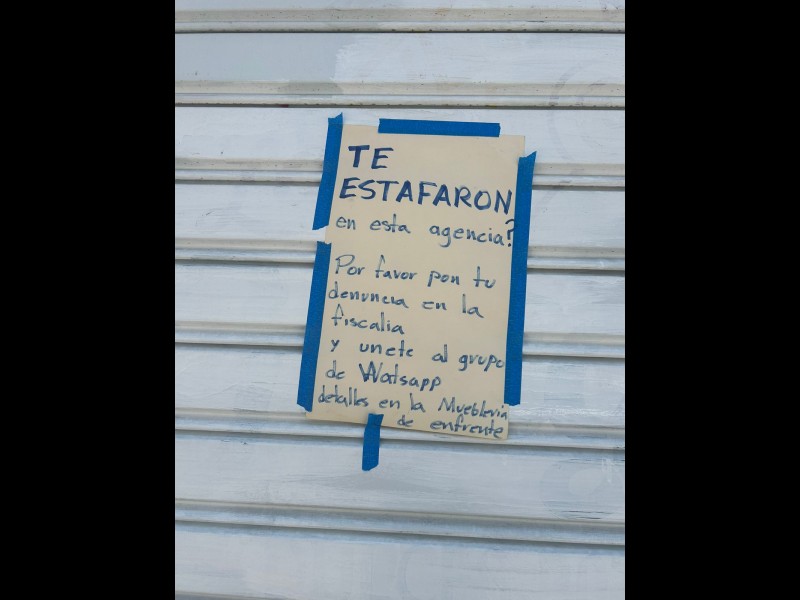 TE
ESTAFARON
en esta agencia?
Por favor pon tu
denuncia en la
fiscalia
y unete al grupo
de Watsapp
detalles en la Muebleria
de enfrente